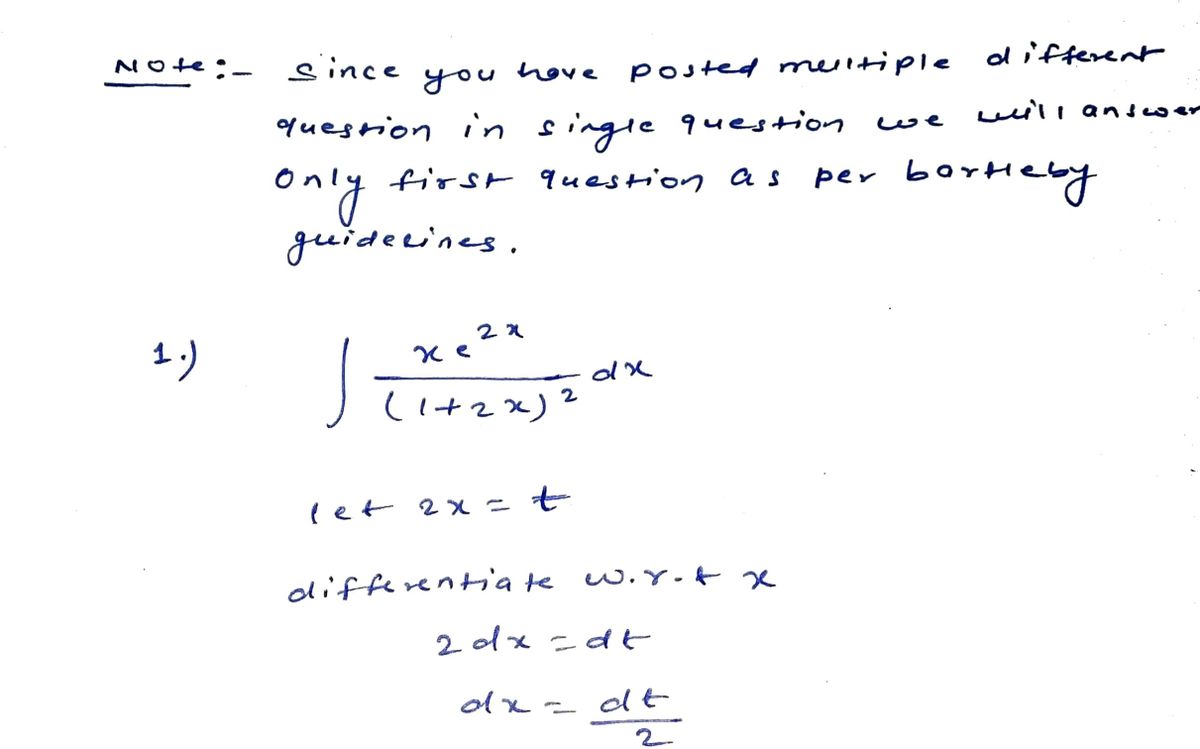 Note:- Since you have posted multiple different
question in single question we will answer
Only first question as per bartleby
guidelines.
1.) ∫ x e^{2x} / (1+2x)^2 dx
let 2x = t
differentiate w.r.t x
2 dx = dt
dx = dt/2